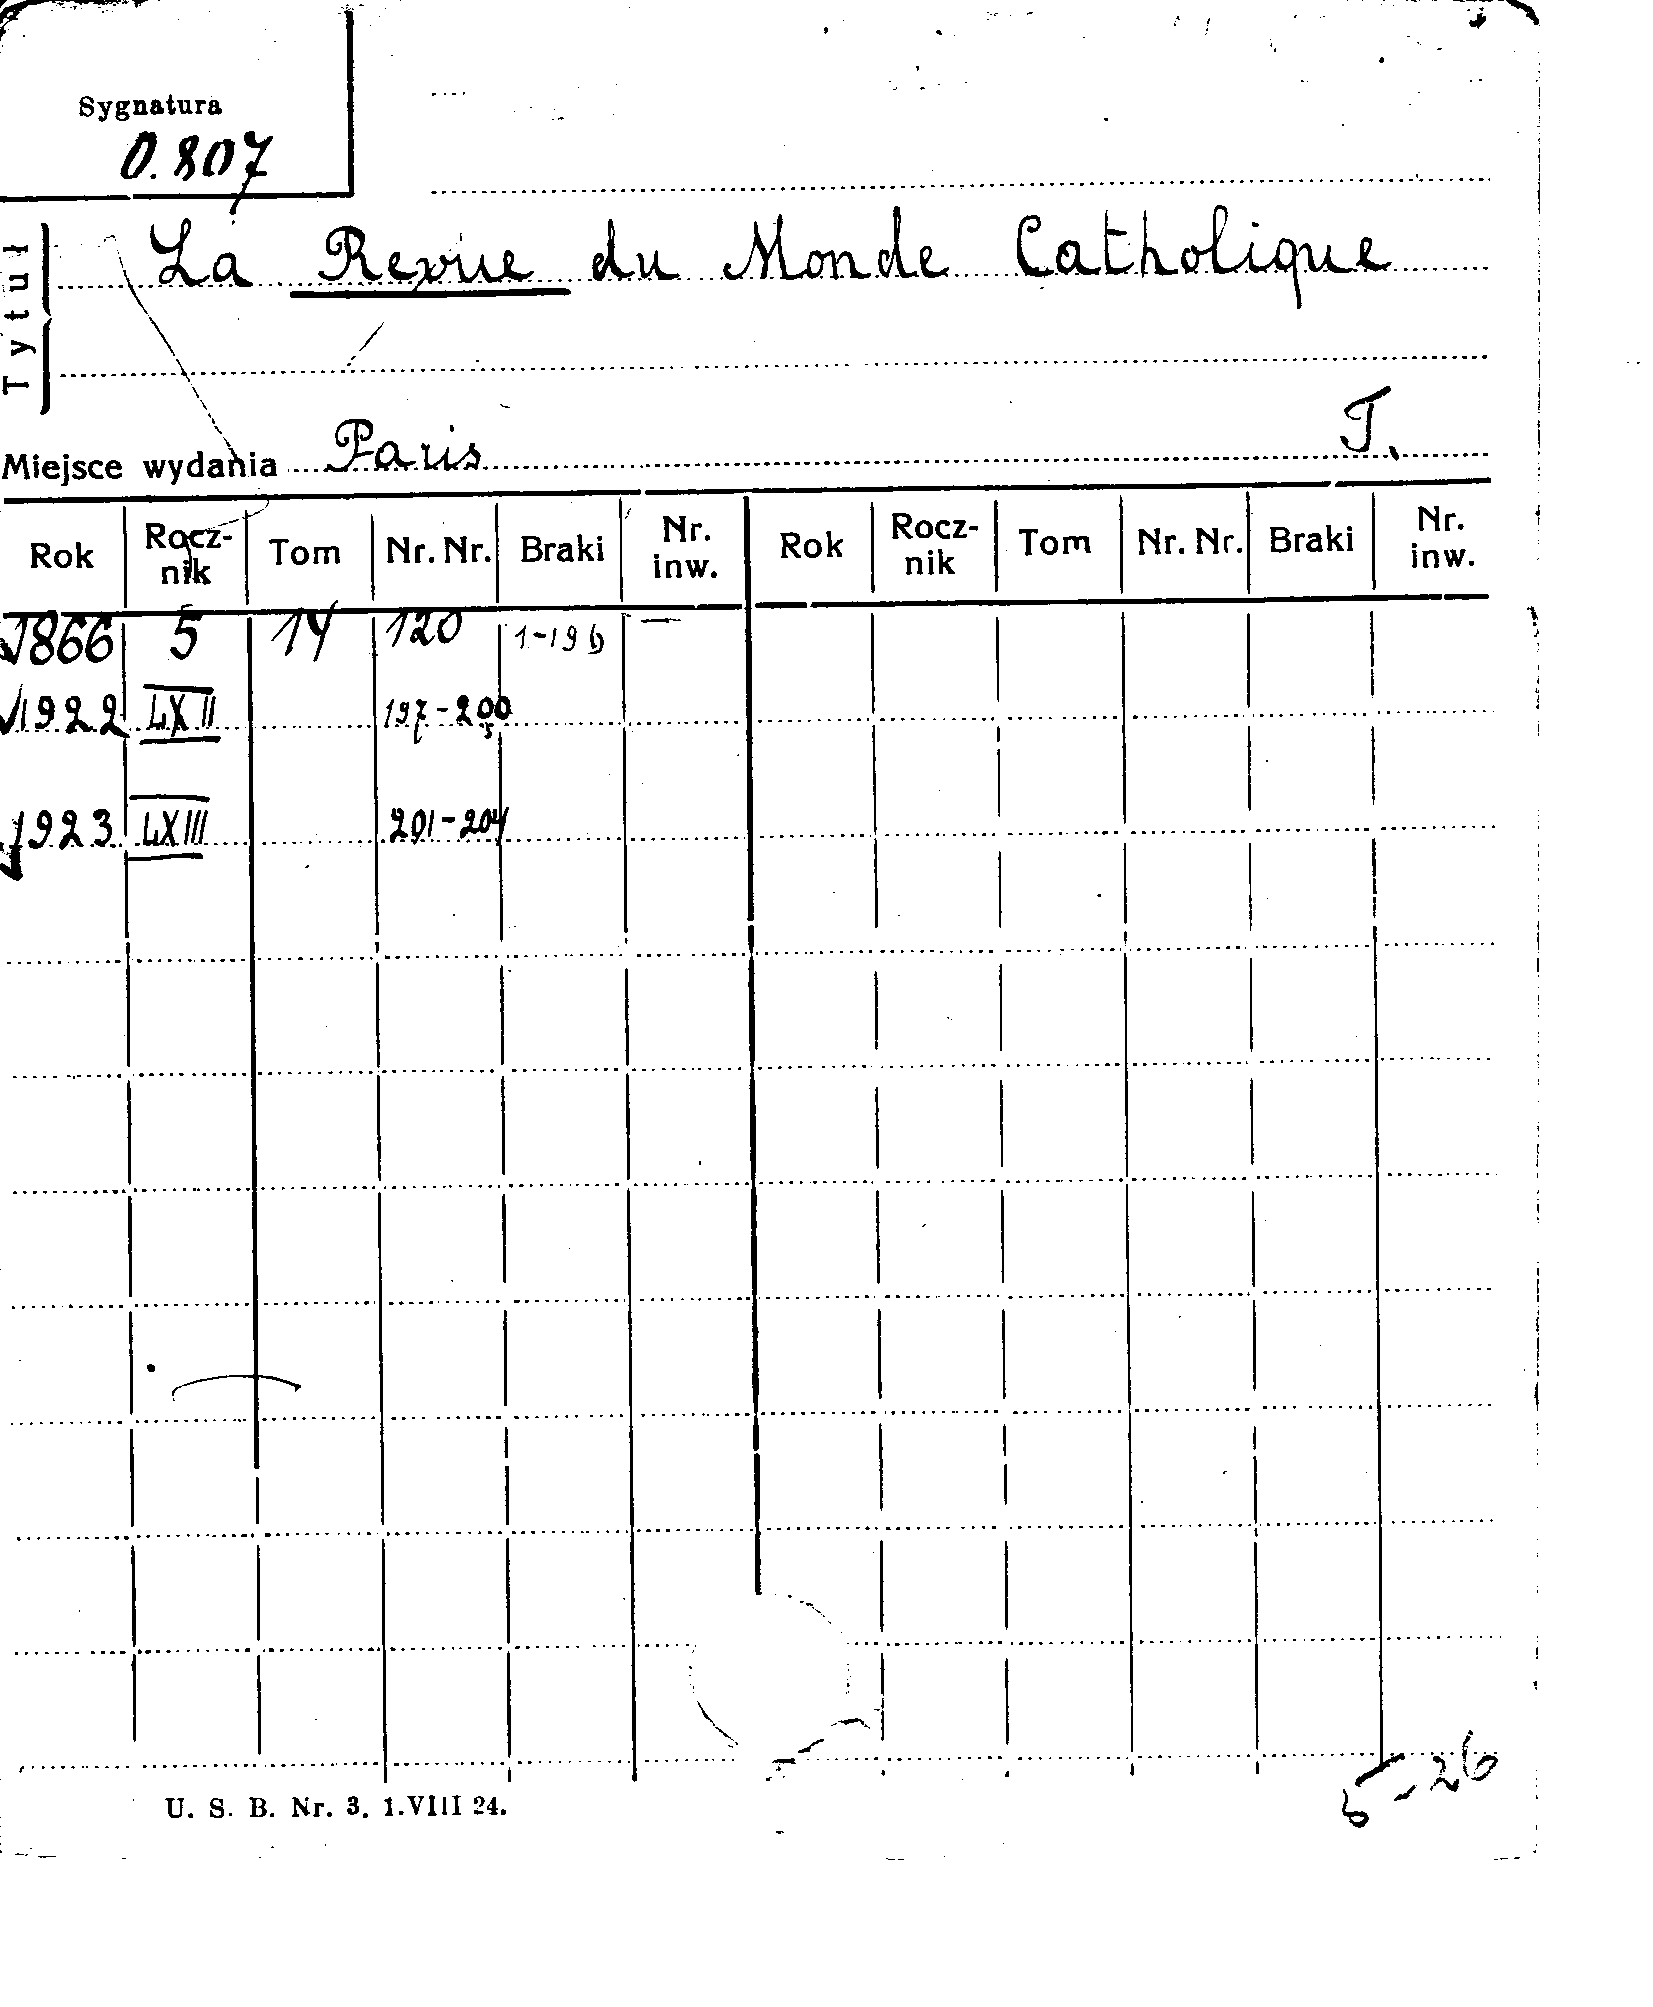 Sygnatura
0.807
Tytuł
La Revue du Monde Catholique
Miejsce wydania Paris T.
Rok Rocz-nik Tom Nr. Nr. Braki Nr. inw. Rok Rocz-nik Tom Nr. Nr. Braki Nr. inw.
1866 5 14 120 1-196 —
1922 LXII 197-200
1923 LXIII 201-204
U. S. B. Nr. 3. 1.VIII 24.
5-26